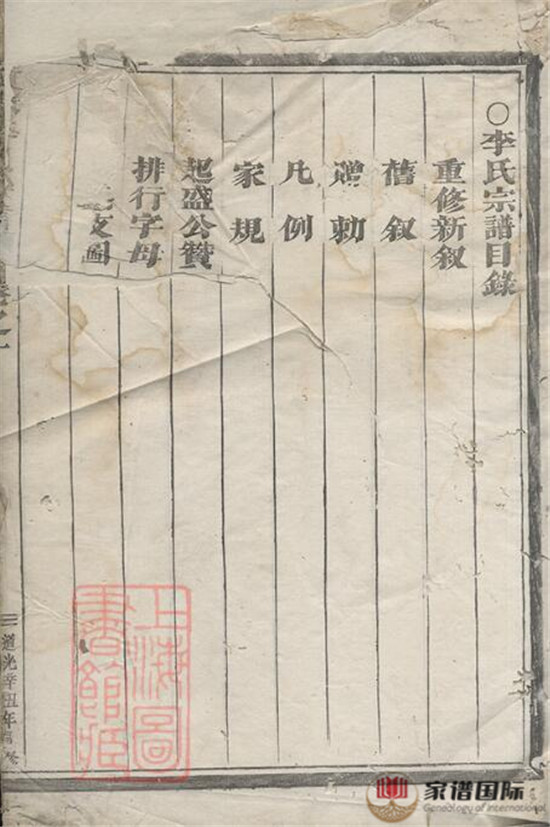 ○李氏宗譜目錄
重修新叙
舊叙
贈勅
凡例
家規
起盛公贊
排行字母
支圖
道光辛丑年
上海圖
書館
家谱国际
Genealogy of International